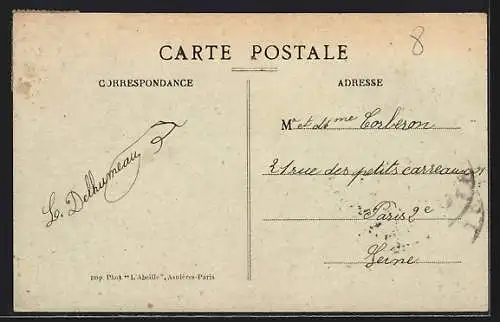 8
CARTE POSTALE
CORRESPONDANCE
ADRESSE
Mr et Mme Corberon
21 rue des petits carreaux
Paris 2e
Seine
L. Delhumeau
Imp. Phot. "L'Abeille", Asnières-Paris